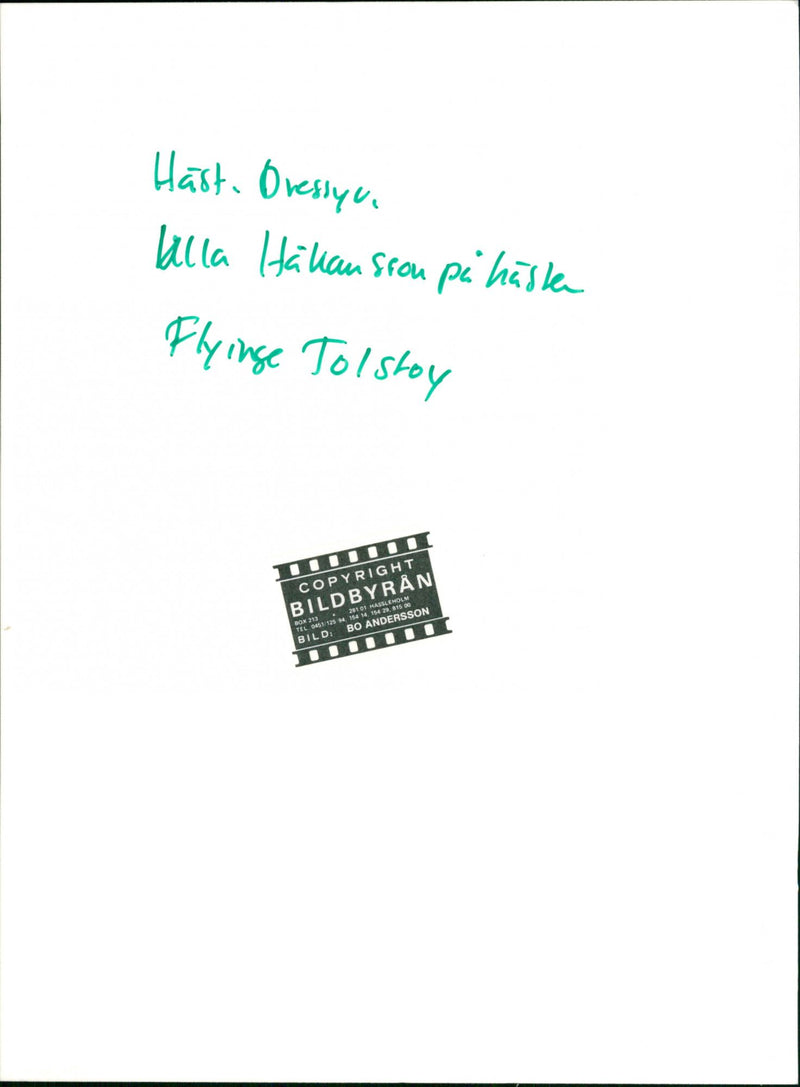 Häst. Dressyr.
Ulla Håkansson på hästen
Flyinge Tolstoy
COPYRIGHT
BILDBYRÅN
BOX 213 281 01 HÄSSLEHOLM
TEL. 0451/125 94, 154 14, 154 29, 815 00
BILD: BO ANDERSSON